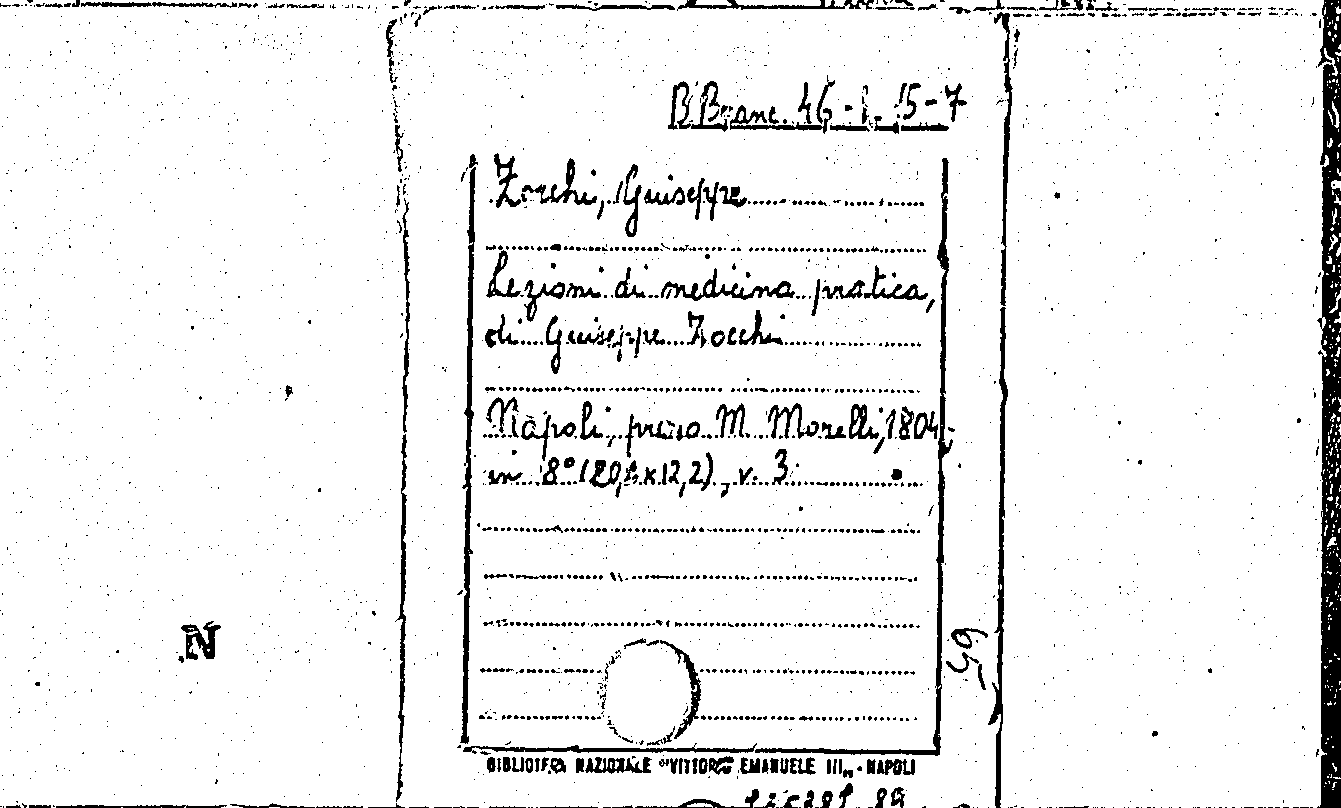 B Branc. 46-I. 15-7
Zocchi, Giuseppe
Lezioni di medicina pratica,
di Giuseppe Zocchi
Napoli, presso M. Morelli, 1804,
in 8° (20, x12,2), v. 3
59
N
BIBLIOTECA NAZIONALE "VITTORIO EMANUELE III" - NAPOLI